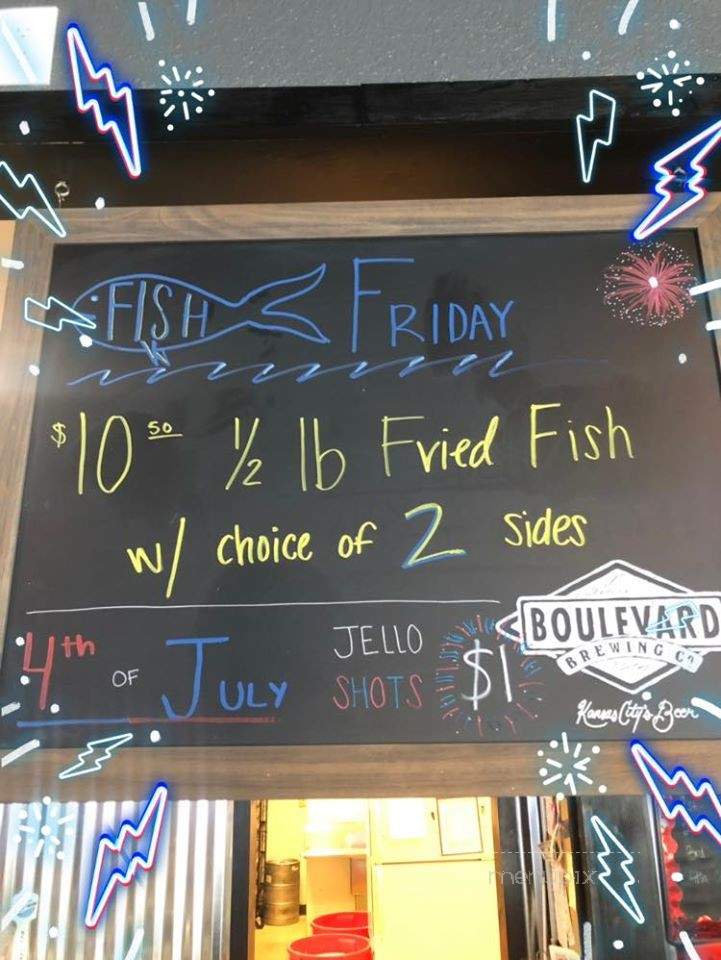 FISH FRIDAY
$10 50 1/2 lb Fried Fish
w/ choice of 2 sides
4th OF JULY
JELLO
SHOTS
$1
BOULEVARD
BREWING Co
Kansas City's Beer
menupix